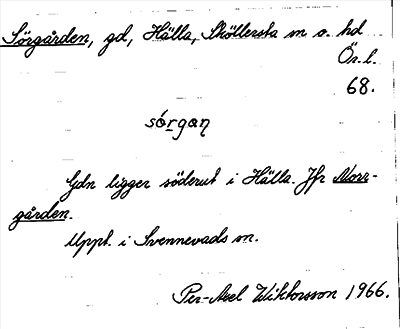 Sörgården, gd, Hälla, Sköllersta sn o. hd
Ör. l.
68.
sórgan
Gdn ligger söderut i Hälla. Jfr Norr-
gården.
Uppt. i Svennevads sn.
Per-Axel Wiktorsson 1966.